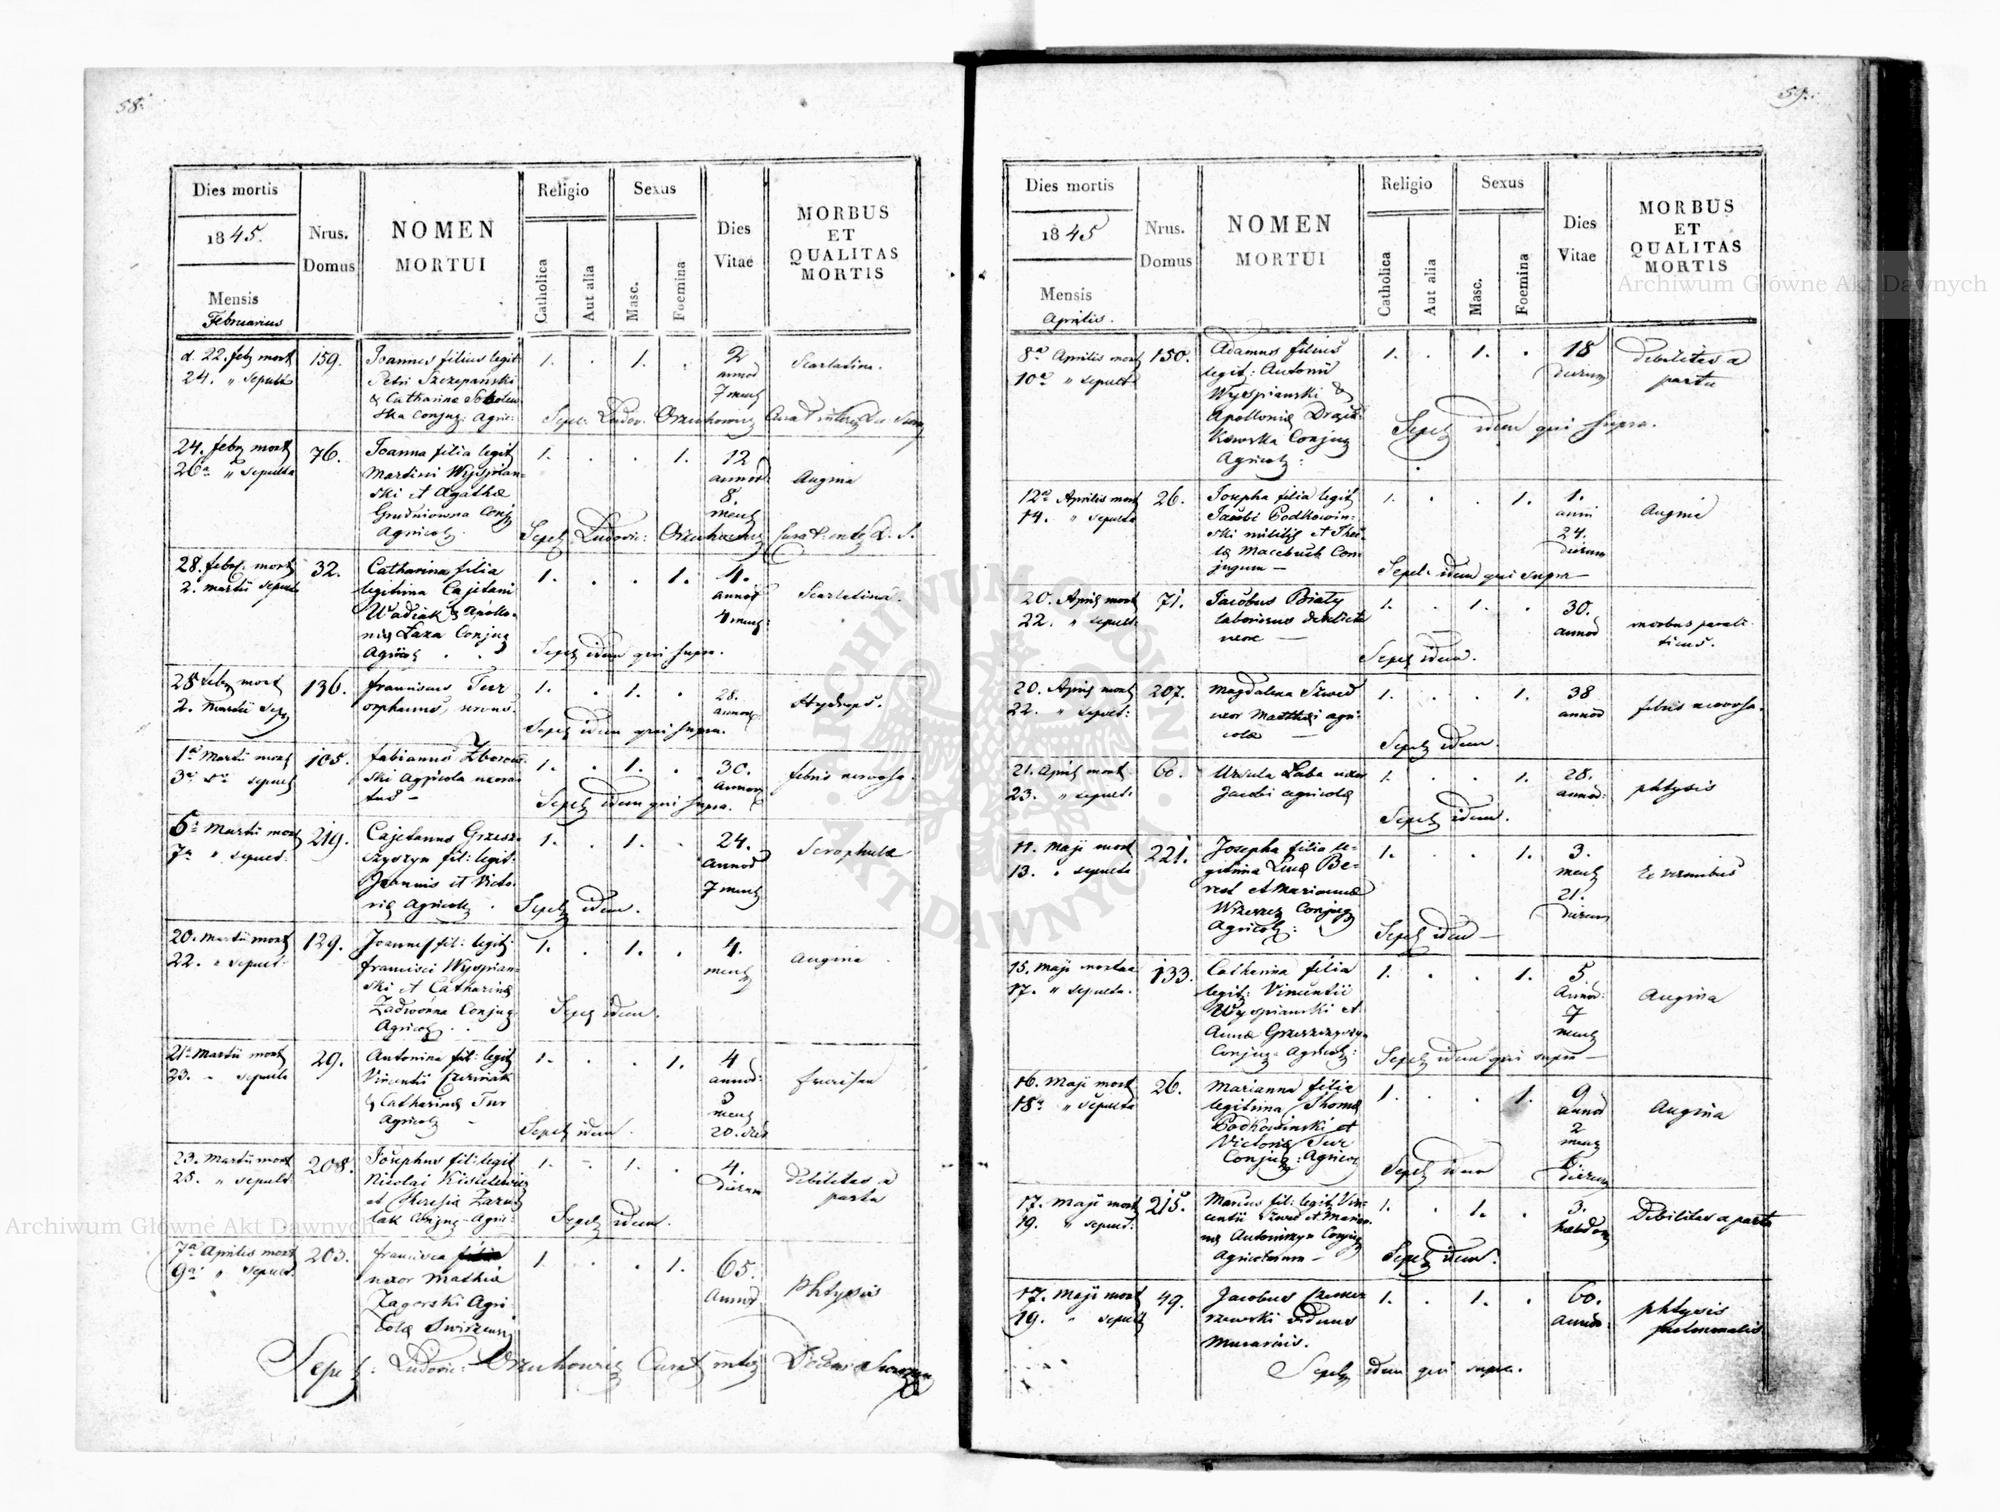 58.
Dies mortis
1845.
Mensis
Februarius
Nrus.
Domus
NOMEN
MORTUI
Religio
Catholica
Aut alia
Sexus
Masc.
Foemina
Dies
Vitae
MORBUS
ET
QUALITAS
MORTIS
d. 22. feb mort
24. " sepult
159.
Joannes filius legit
Petri Szczepański
& Catharina
Conjug: Agric:
1. . 1. .
2
annor
7 mens
Scarlatina.
Sepel: Ludov: Orzechowicz
24. feb mort
26a " sepulta
76.
Joanna filia legit
Martini Wyspian-
ski et Agathæ
Grudniowna Conj
Agricol.
1. . . 1.
12
annor:
8.
mens
Angina
Sepel Ludovic: Orzechowicz
28. feb. mort
2. martii sepult
32.
Catharina filia
legitima Cajetani
Wadiak & Apollo-
niæ Laxa Conjug
Agricol . .
1. . . 1.
4.
annor
4 mens
Scarlatina.
Sepel idem qui supra.
28 feb mort
2. Martii Sep
136.
franciscus Tur
orphanus,
1. . 1. .
28.
annor
Hydrops.
Sepel idem qui supra.
1a Martii mort
3a sepult
105.
fabianus
ski agricola uxora-
tus —
1. . 1. .
30.
Annor
febris nervosa.
Sepel idem qui supra.
Martii mort
7a " sepult:
219.
Cajetanus Grzesz-
czyszyn fil: legit:
Joannis et Victo-
riæ Agricol .
1. . 1. .
24.
Annor
7 mens
Scrophula
Sepel idem.
20. Martii mort
22. " sepult:
129.
Joannes fil: legit:
francisci Wyspian-
ski et Catharinæ
Zadworna Conjug
Agricol . .
1. . 1. .
4.
mens
angina
Sepel idem.
21a Martii mort
23. " sepulta
29.
Antonina fil: legit
Vincentii
& Catharinæ Tur
Agricol —
1. . . 1.
4
annor:
3
mens
20. dier
fraisen
Sepel idem.
23. Martii mort
25. " sepult
208.
Josephus fil: legit
Nicolai
et Theresia
Conjug - Agric:
1. - 1. .
4.
Dierum
Debilitas a
partu
Sepel idem.
7a Aprilis mort
9a " sepult
203.
francisca
uxor Mathiæ
Zagorski Agri
colæ
1. . . 1.
65.
Annor
Phtysis
Sepel: Ludovic: Orzechowicz Curat
59.
Dies mortis
1845
Mensis
Aprilis.
Nrus.
Domus
NOMEN
MORTUI
Religio
Catholica
Aut alia
Sexus
Masc.
Foemina
Dies
Vitae
MORBUS
ET
QUALITAS
MORTIS
8a Aprilis mort
10a " sepult
150.
Adamus filius
legit: Antonii
Wyspianski &
Apolloniæ
Conjug
Agricol:
1. . 1. .
18
Dierum
Debilitas a
partu
Sepel idem qui supra.
12a Aprilis mort
14. " sepulta
26.
Josepha filia legit
Jacobi Podkowin-
ski militis et Thec-
læ Con-
jugum —
1. . . 1.
1.
anni
24.
Dierum
Angina
Sepel: idem qui supra —
20. April mort
22. " sepult:
71.
Jacobus Biały
laboriosus
uxore —
1. . 1. .
30.
annor
morbus parali-
ticus.
Sepel idem.
20. April mort
22. " sepult:
207.
Magdalena Szwed
uxor Matthæi agri-
colæ —
1. . . 1.
38
annor
febris nervosa.
Sepel idem.
21. April mort
23. " sepult:
60.
Ursula Laba uxor
Jacobi agricolæ
1. . . 1.
28.
annor:
phtysis
Sepel idem.
11. Maji mort
13. " sepulta
221.
Josepha filia le-
gitima Lucæ Be-
rest et Mariannæ
Wrzeszcz Conjug
Agricol:
1. . . 1.
3.
mens
21.
Dierum
Ex vermibus
Sepel idem —
15. Maji mortua
17. " sepulta.
133.
Catharina filia
legit: Vincentii
Wyspianski et
Annæ Grzeszczyszyn
Conjug- Agricol:
1. . . 1.
5.
Annor:
7
mens
Angina
Sepel idem qui supra —
16. Maji mort
18a " sepulta
26.
Marianna filia
legitima Thomæ
Podkowinski et
Victoriæ Tur
Conjug: Agricol
1. . . 1.
9
annor
2
mens
Dierum
Angina
Sepel idem
17. Maji mort
19. " sepult:
215.
Marcus fil: legit Vin-
centii Szwed et Marian-
næ Antoniszyn Conjug
Agricolarum —
1. . 1. .
3.
hebdom
Debilitas a partu
Sepel idem.
17. Maji mort
19. " sepult
49.
Jacobus
viduus
Murarius.
1. . 1. .
60.
annor.
phtysis
pulmonalis
Sepel idem qui supra.
Archiwum Główne Akt Dawnych
Archiwum Główne Akt Dawnych
ARCHIWUM GŁÓWNE
AKT DAWNYCH